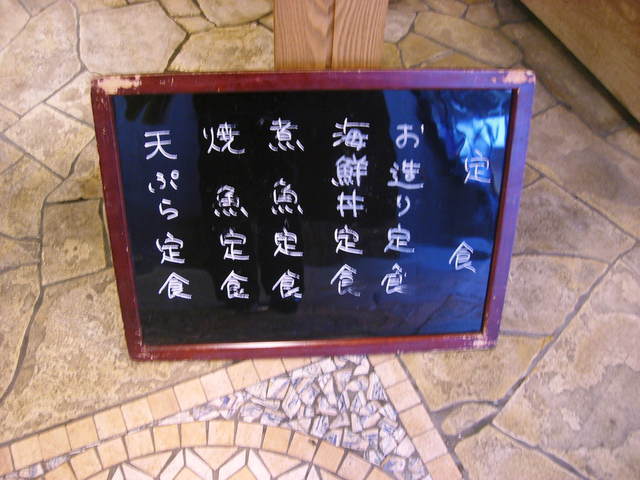 定食
お造り定食
海鮮丼定食
煮魚定食
焼魚定食
天ぷら定食